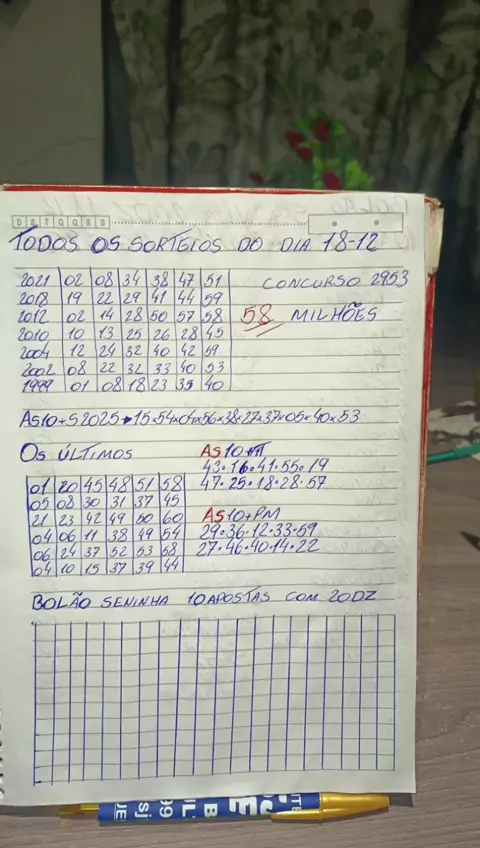 D S T Q Q S S
TODOS OS SORTEIOS DO DIA 18-12
2021 02 08 34 38 47 51
2018 19 22 29 41 44 59
2012 02 14 28 50 57 58
2010 10 13 25 26 28 45
2004 12 24 32 40 42 59
2002 08 22 32 33 40 53
1999 01 08 18 23 35 40
CONCURSO 2953
58 MILHÕES
AS 10 + S 2025 → 15×54×04×56×38×27×37×05×40×53
OS ÚLTIMOS
01 20 45 48 51 58
05 08 30 31 37 45
21 23 42 49 50 60
04 06 11 38 49 54
06 24 37 52 53 58
04 10 15 37 39 44
AS 10 +
43•16•41•55•19
47•25•18•28•57
AS 10 + PM
29•36•12•33•59
27•46•40•14•22
BOLÃO SENINHA 10 APOSTAS COM 20DZ